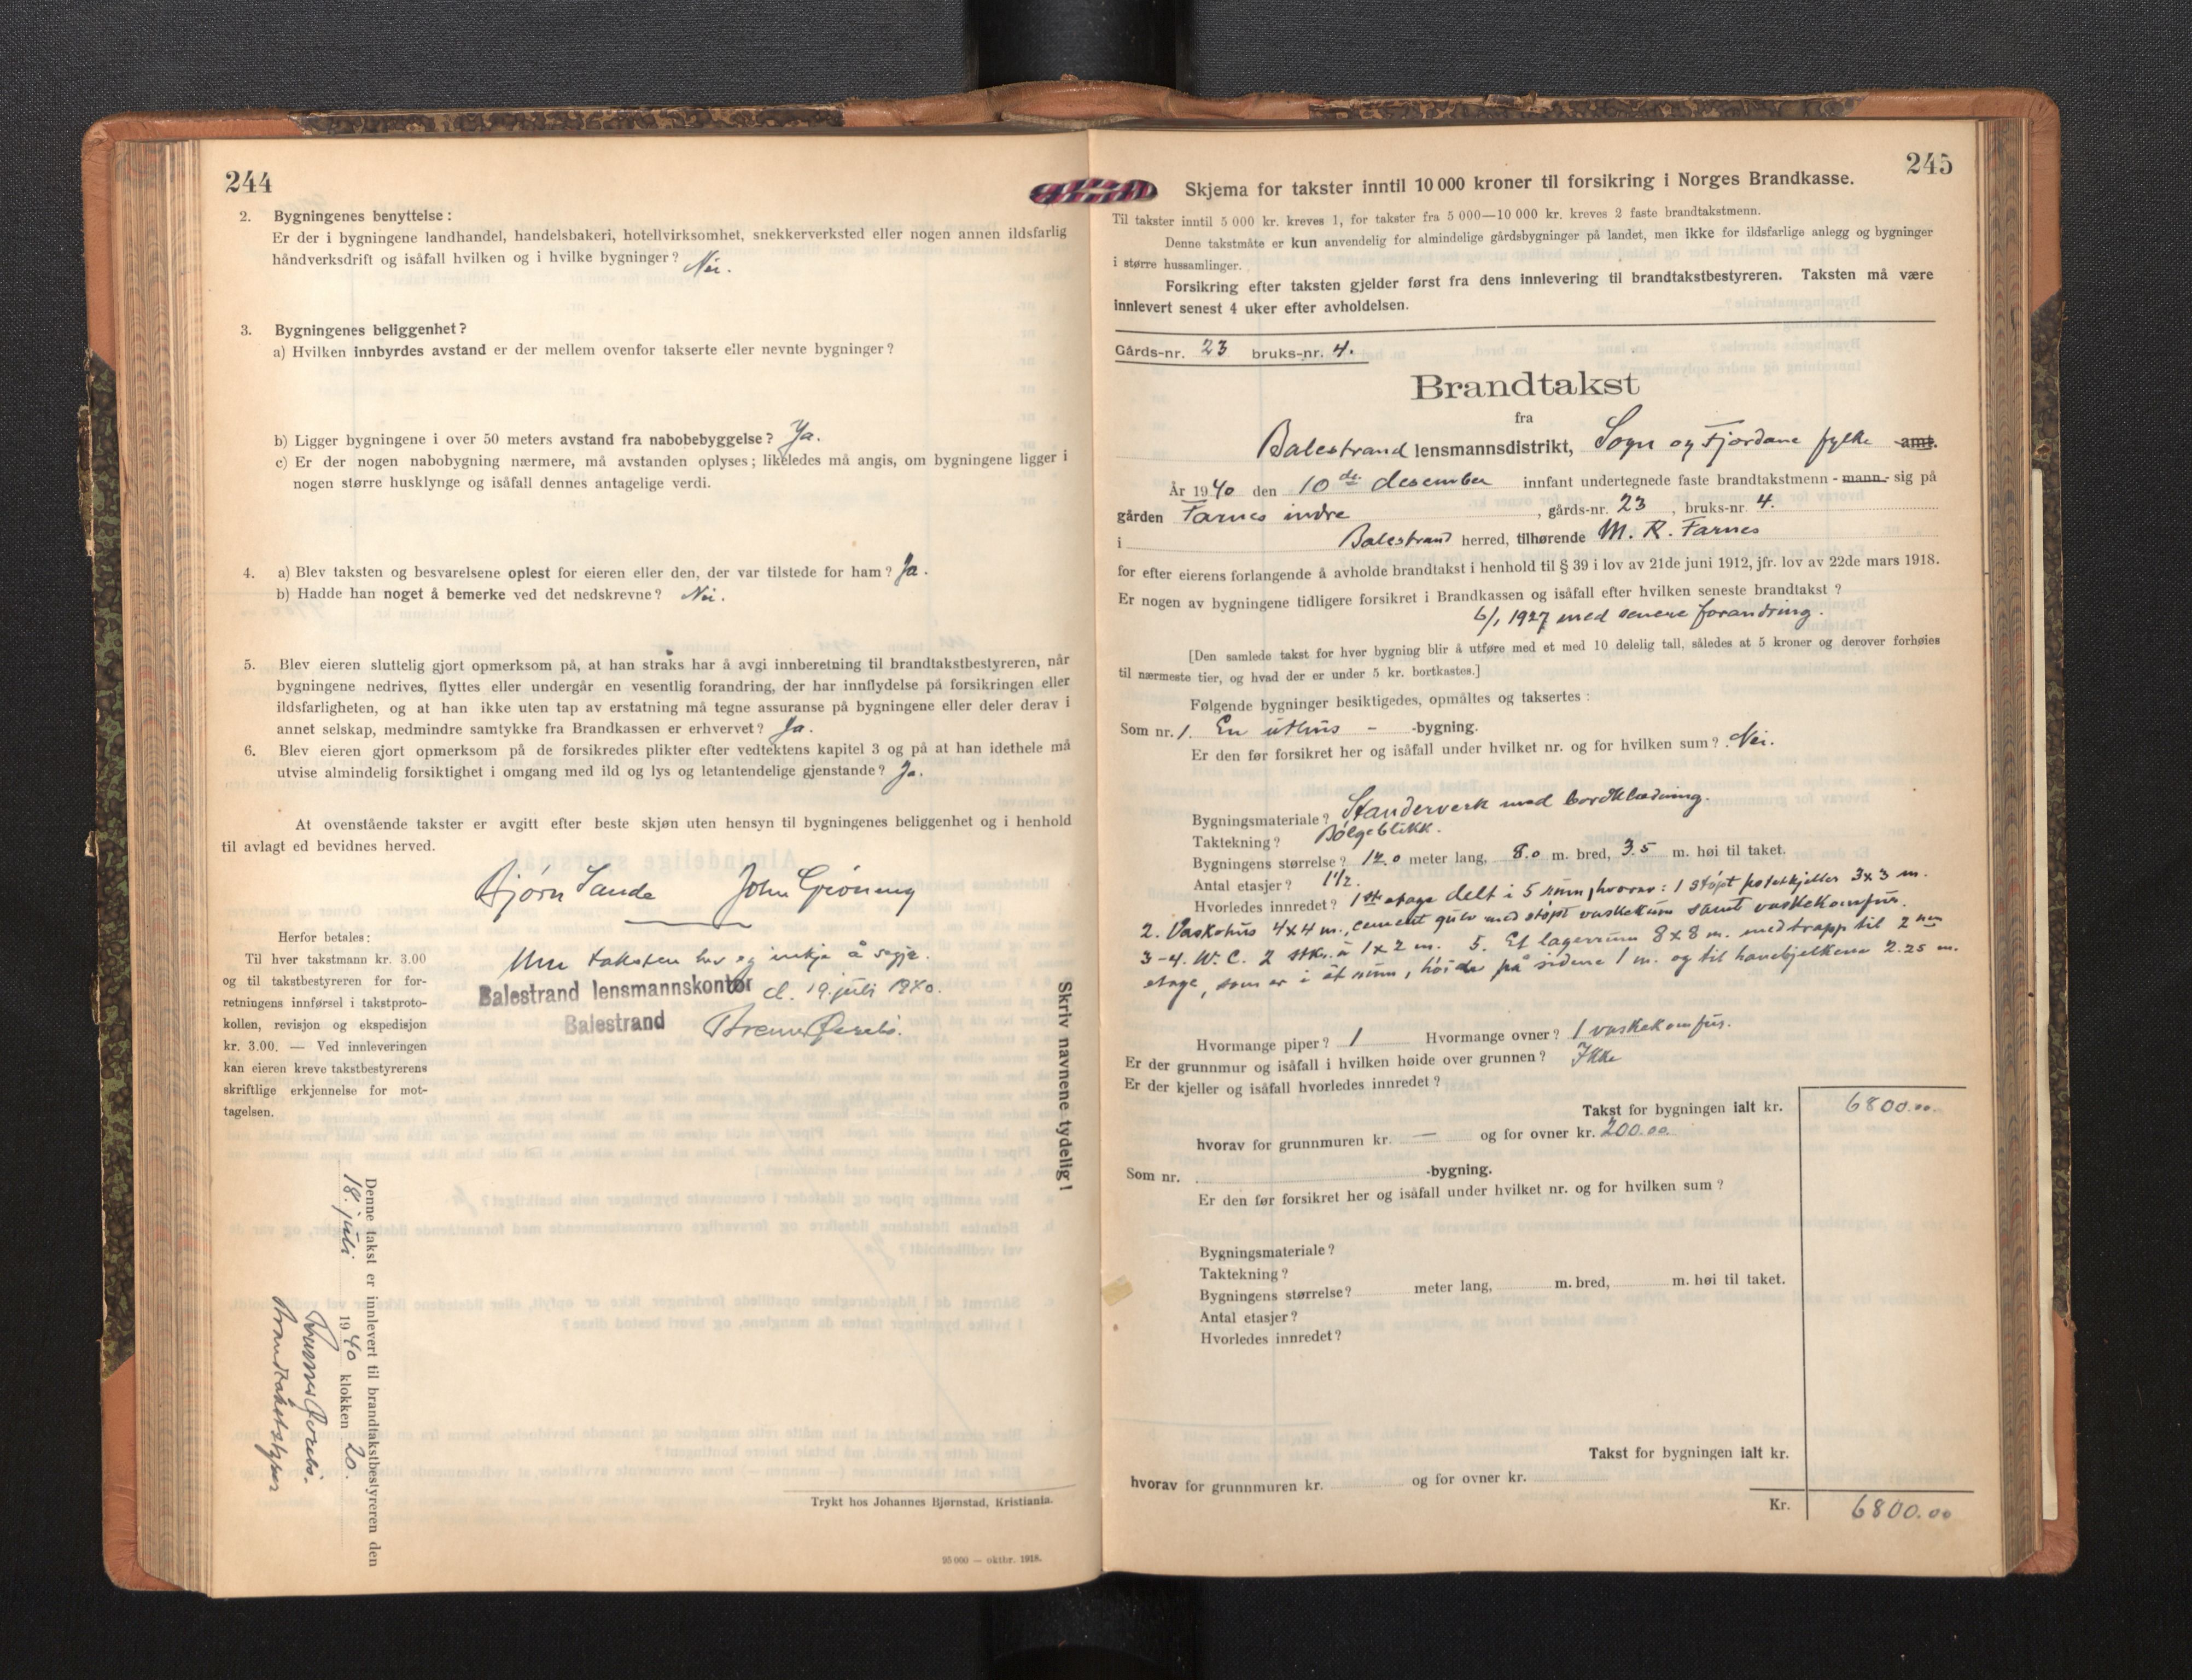 244
2. Bygningenes benyttelse:
Er der i bygningene landhandel, handelsbakeri, hotellvirksomhet, snekkerverksted eller nogen annen ildsfarlig
håndverksdrift og isåfall hvilken og i hvilke bygninger? Nei.
3. Bygningenes beliggenhet?
a) Hvilken innbyrdes avstand er der mellem ovenfor takserte eller nevnte bygninger?
b) Ligger bygningene i over 50 meters avstand fra nabobebyggelse? Ja.
c) Er der nogen nabobygning nærmere, må avstanden oplyses; likeledes må angis, om bygningene ligger i
nogen større husklynge og isåfall dennes antagelige verdi.
4. a) Blev taksten og besvarelsene oplest for eieren eller den, der var tilstede for ham? Ja.
b) Hadde han noget å bemerke ved det nedskrevne? Nei.
5. Blev eieren sluttelig gjort opmerksom på, at han straks har å avgi innberetning til brandtakstbestyreren, når
bygningene nedrives, flyttes eller undergår en vesentlig forandring, der har innflydelse på forsikringen eller
ildsfarligheten, og at han ikke uten tap av erstatning må tegne assuranse på bygningene eller deler derav i
annet selskap, medmindre samtykke fra Brandkassen er erhvervet? Ja.
6. Blev eieren gjort opmerksom på de forsikredes plikter efter vedtektens kapitel 3 og på at han idethele må
utvise almindelig forsiktighet i omgang med ild og lys og letantendelige gjenstande? Ja.
At ovenstående takster er avgitt efter beste skjøn uten hensyn til bygningenes beliggenhet og i henhold
til avlagt ed bevidnes herved.
Bjørn Sande John Grøning
Um taksten hev eg inkje å segja.
Balestrand lensmannskontor d. 19. juli 1940.
Balestrand
Herfor betales:
Til hver takstmann kr. 3.00
og til takstbestyreren for for-
retningens innførsel i takstproto-
kollen, revisjon og ekspedisjon
kr. 3.00. — Ved innleveringen
kan eieren kreve takstbestyrerens
skriftlige erkjennelse for mot-
tagelsen.
Skriv navnene tydelig!
Denne takst er innlevert til brandtakstbestyreren den
18. juli 1940 klokken 20.
Brandtakstbestyrer
Trykt hos Johannes Bjørnstad, Kristiania.
95 000 — oktbr. 1918.
245
Skjema for takster inntil 10 000 kroner til forsikring i Norges Brandkasse.
Til takster inntil 5 000 kr. kreves 1, for takster fra 5 000—10 000 kr. kreves 2 faste brandtakstmenn.
Denne takstmåte er kun anvendelig for almindelige gårdsbygninger på landet, men ikke for ildsfarlige anlegg og bygninger
i større hussamlinger.
Forsikring efter taksten gjelder først fra dens innlevering til brandtakstbestyreren. Taksten må være
innlevert senest 4 uker efter avholdelsen.
Gårds-nr. 23 bruks-nr. 4.
Brandtakst
fra
Balestrand lensmannsdistrikt, Sogn og Fjordane fylke amt.
År 1940 den 10 de desember innfant undertegnede faste brandtakstmenn - mann - sig på
gården Farnes indre, gårds-nr. 23, bruks-nr. 4.
i Balestrand herred, tilhørende M. R. Farnes
for efter eierens forlangende å avholde brandtakst i henhold til § 39 i lov av 21de juni 1912, jfr. lov av 22de mars 1918.
Er nogen av bygningene tidligere forsikret i Brandkassen og isåfall efter hvilken seneste brandtakst?
6/1 1927 med senere forandring.
[Den samlede takst for hver bygning blir å utføre med et med 10 delelig tall, således at 5 kroner og derover forhøies
til nærmeste tier, og hvad der er under 5 kr. bortkastes.]
Følgende bygninger besiktigedes, opmåltes og taksertes:
Som nr. 1. En uthus - -bygning.
Er den før forsikret her og isåfall under hvilket nr. og for hvilken sum? Nei.
Bygningsmateriale? Standerverk med bordklædning.
Taktekning? Bølgeblikk.
Bygningens størrelse? 12.0 meter lang, 8.0 m. bred, 3.5 m. høi til taket.
Antal etasjer? 1 1/2.
Hvorledes innredet? 1ste etage delt i 5 rum, hvorav: 1 støpt potetkjeller 3x3 m.
2. Vaskehus 4x4 m., cement gulv med støpt vaskekum samt vaskekomfur.
3-4. W.C. 2 stkr. à 1x2 m. 5. Et lagerrum 8x8 m. med trapp til 2nen
etage, som er i et rum, høide på sidene 1 m. og til hanebjelkene 2.25 m.
Hvormange piper? 1 Hvormange ovner? 1 vaskekomfur.
Er der grunnmur og isåfall i hvilken høide over grunnen? Ikke
Er der kjeller og isåfall hvorledes innredet?
Takst for bygningen ialt kr. 6800.00.
hvorav for grunnmuren kr. — og for ovner kr. 200.00
Som nr. -bygning.
Er den før forsikret her og isåfall under hvilket nr. og for hvilken sum?
Bygningsmateriale?
Taktekning?
Bygningens størrelse? meter lang, m. bred, m. høi til taket.
Antal etasjer?
Hvorledes innredet?
Takst for bygningen ialt kr.
hvorav for grunnmuren kr. og for ovner kr.
Kr. 6800.00